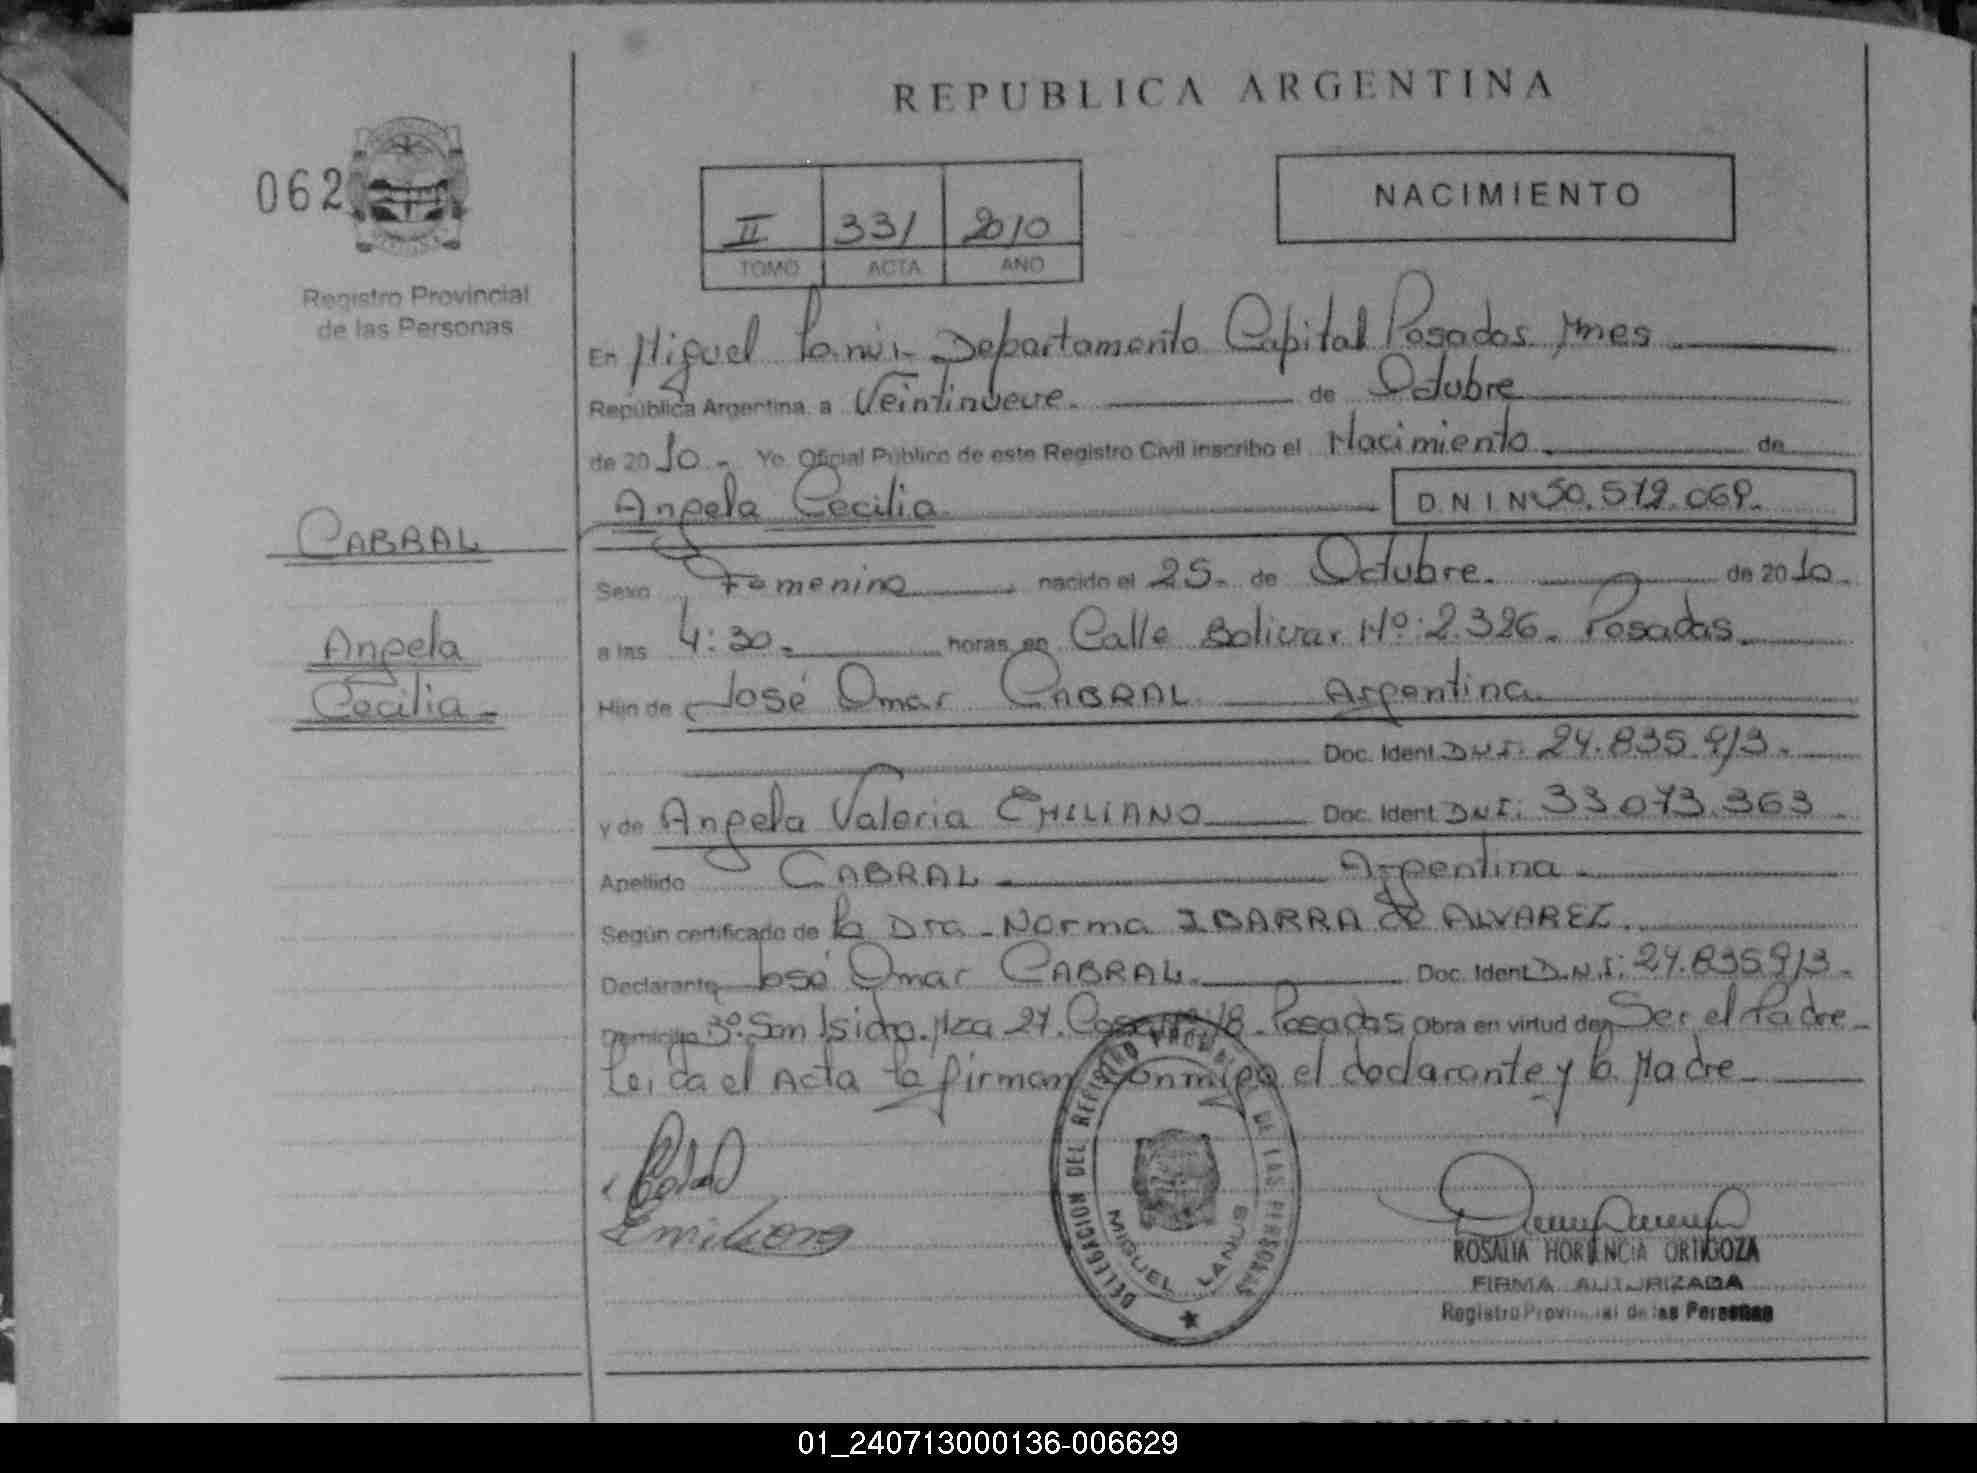 REPUBLICA ARGENTINA
062
II 331 2010
TOMO ACTA AÑO
NACIMIENTO
Registro Provincial
de las Personas
En Miguel Lanús - Departamento Capital Posadas Mnes
República Argentina a Veintinueve. de Octubre
de 2010 - Yo Oficial Público de este Registro Civil inscribo el Nacimiento de
Angela Cecilia D N I Nº 50.512.069.
CABRAL
Sexo Femenino nacido el 25. de Octubre. de 2010.
Angela
a las 4:30. horas en Calle Bolivar Nº: 2.326. Posadas.
Cecilia -
Hijo de José Omar CABRAL Argentina
Doc. Ident. D.N.I. 24.835.913.
y de Angela Valeria EMILIANO Doc. Ident. D.N.I: 33.073.363
Apellido CABRAL Argentina
Según certificado de la Dra. Norma IBARRA de ALVAREZ.
Declarante José Omar CABRAL. Doc. Ident. D.N.I: 24.835.913.
Domicilio San Isidro. Mza 27. Casa 18. Posadas Obra en virtud de Ser el Padre
Leida el Acta la firman conmigo el declarante y la Madre
Emiliano
DELEGACION DEL REGISTRO PROVINCIAL DE LAS PERSONAS
MIGUEL LANUS
ROSALIA HORTENCIA ORTIGOZA
FIRMA AUTORIZADA
Registro Provincial de las Personas
01_240713000136-006629